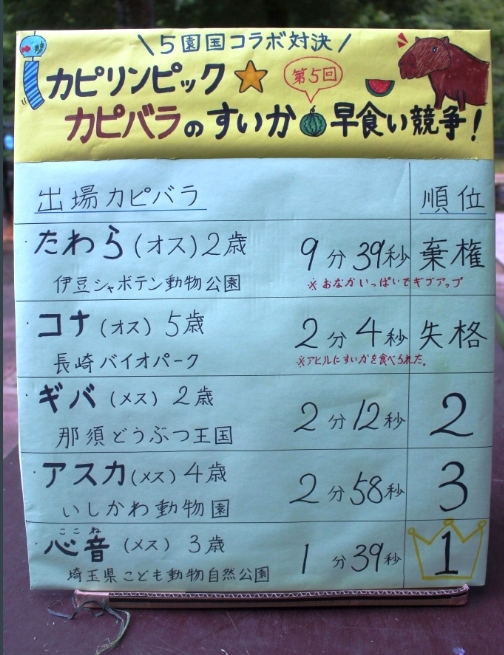 \5園国コラボ対決/
カピリンピック
第5回
カピバラのすいか早食い競争!
出場カピバラ 順位
たわら(オス)2歳 9分39秒 棄権
伊豆シャボテン動物公園 ※おなかいっぱいでギブアップ
コナ(オス)5歳 2分4秒 失格
長崎バイオパーク ※アヒルにすいかを食べられた。
ギバ(メス)2歳 2分12秒 2
那須どうぶつ王国
アスカ(メス)4歳 2分58秒 3
いしかわ動物園
ここね
心音(メス)3歳 1分39秒 1
埼玉県こども動物自然公園